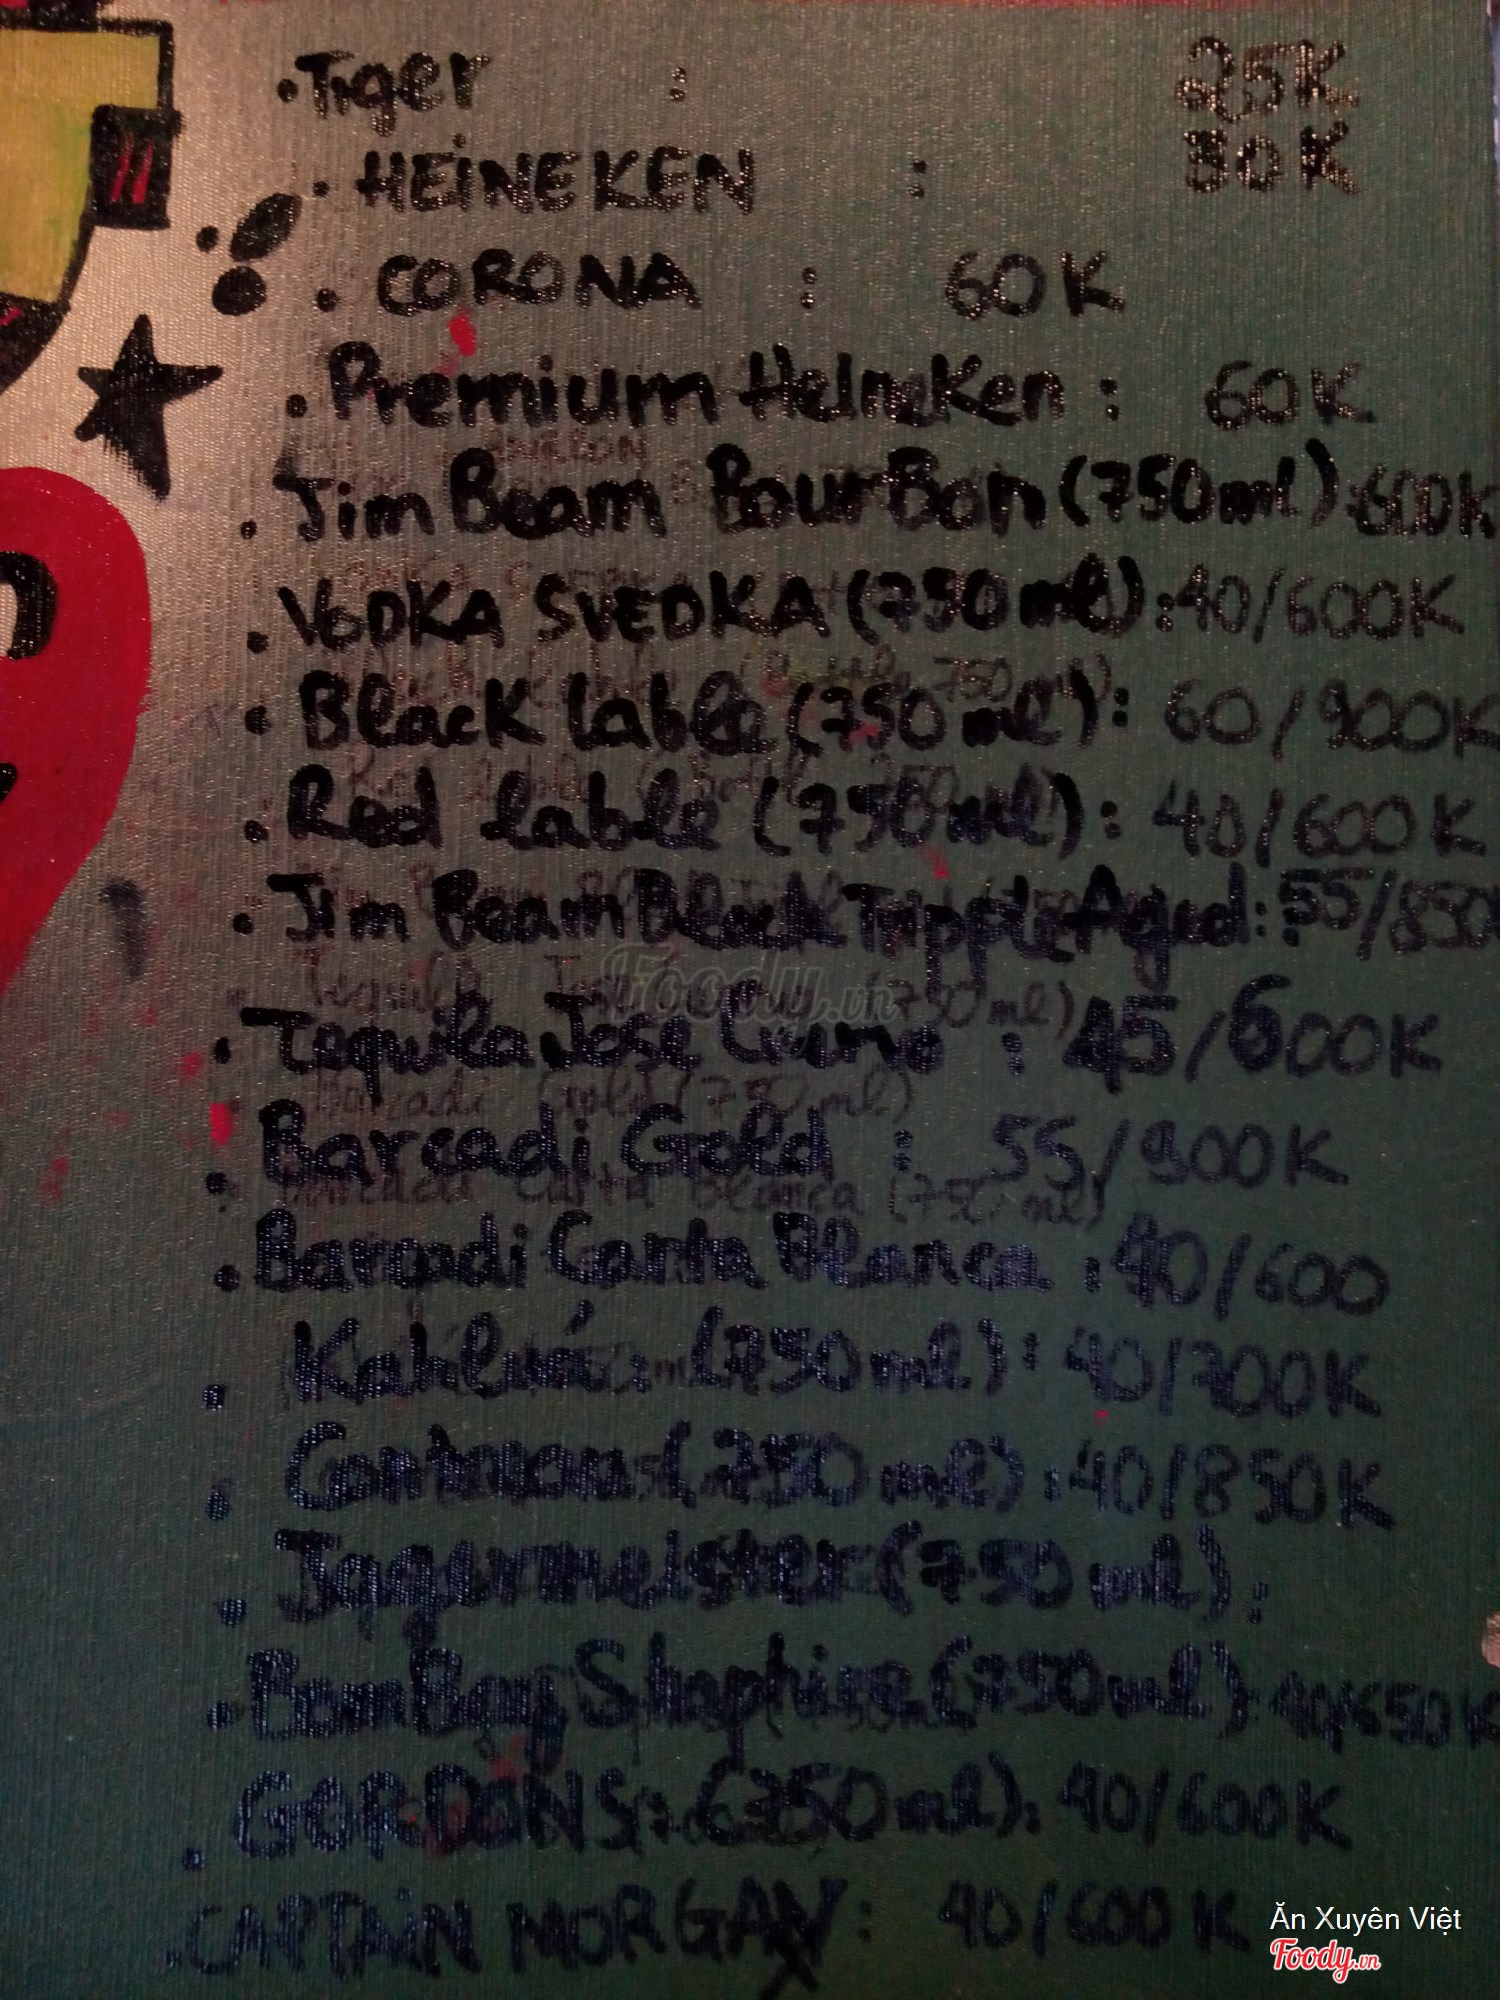 • Tiger : 25K
• HEINEKEN : 30K
• CORONA : 60K
• Premium Heineken : 60K
• Jim Beam BourBon (750ml) : 600K
• VODKA SVEDKA (750ml) : 40/600K
• Black lable (750ml) : 60/900K
• Red lable (750ml) : 40/600K
• Jim Beam Black Tripple Aged : 55/850
• Tequila Jose Cuervo : 45/600K
• Barcadi Gold : 55/900K
• Barcadi Carta Blanca : 40/600
• Kahluá (750ml) : 40/700K
(750ml) : 40/850K
• Jagermeister (750ml) :
• BomBay Shaphire (750ml) : 40/650K
• GORDONS : (750ml) : 40/600K
• CAPTAIN MORGAN : 40/600K
Foody.vn
Ăn Xuyên Việt
Foody.vn